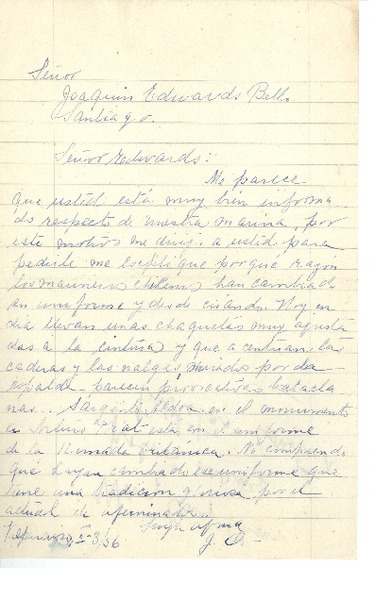 Señor
Joaquin Edwards Bello
Santiago.
Señor Edwards:
Me parece
que usted está muy bien informa
do respecto de nuestra marina, por
este motivo me dirijo a usted para
pedirle me explique por qué razón
los marineros chilenos han cambiado
en uniforme y desde cuándo. Hoy en
dia llevan unas chaquetas muy ajusta
das a la cintura y que acentuan las
caderas y las nalgas mirados por la
espalda parecen provocativas batacla
nas... Sargento Aldea en el monumento
a Arturo Prat está en el uniforme
de la Armada Británica. No comprendo
que hayan cambiado ese uniforme que
tiene una tradicion y viva por el
actual de afeminados.
Valparaiso, 3/56
J.